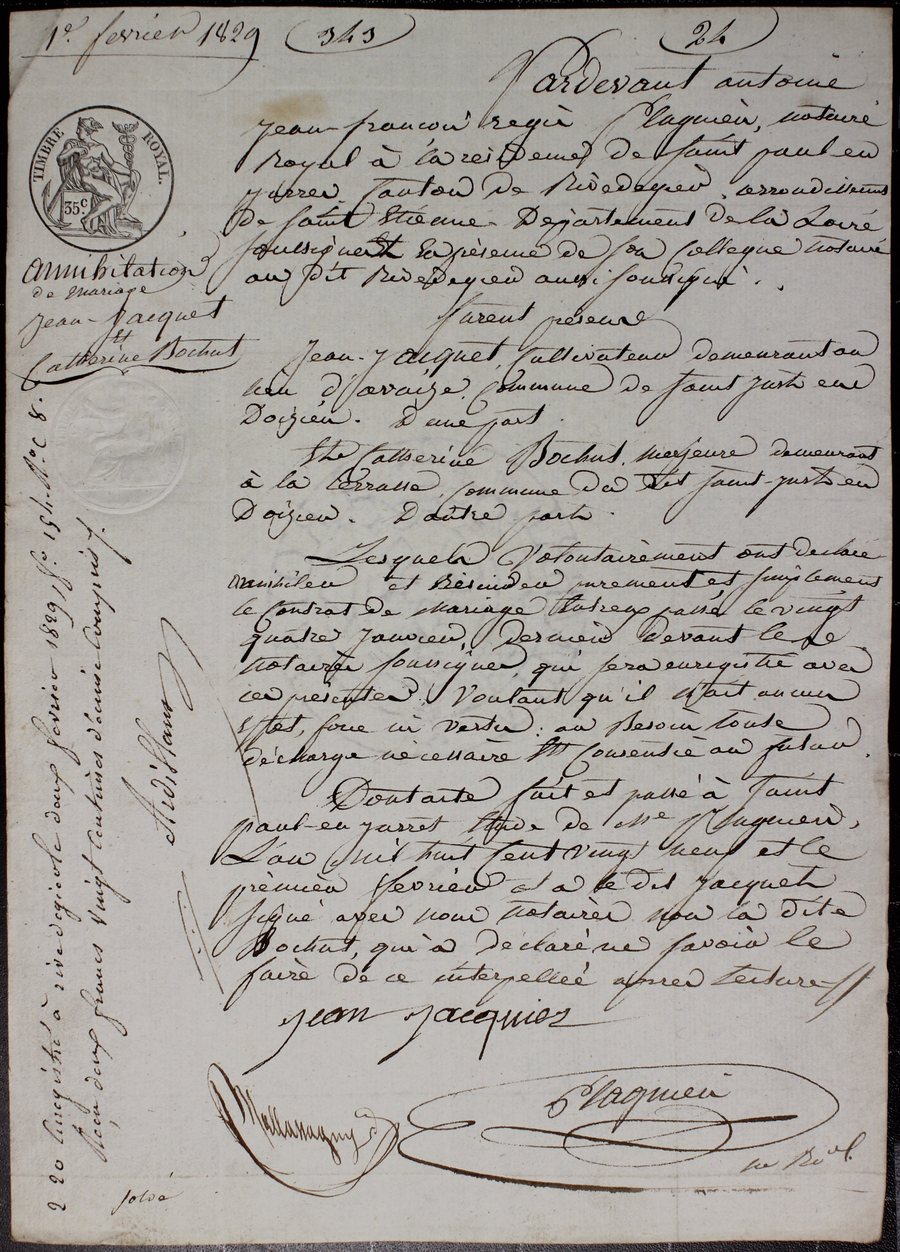 1er fevrier 1829
343
24
TIMBRE ROYAL.
35c
annihilation
de mariage
Jean Jacquet
Et
Catherine Bochut
Pardevant antoine
Jean-françois regis Plagnieu, notaire
Royal à la residence de saint paul-en
Jarret Canton de Rivedegier, arrondissement
de saint Etienne Département de la Loire
soussigné Et En présence de son Collegue notaire
au dit Rivedegier aussi soussigné.
furent présens
Jean Jacquet, Cultivateur demeurant au
lieu d'avaize, Commune de saint just en
Doizieu. D'une part.
Et Catherine Bochut, majeure demeurant
à la terrasse, Commune du dit saint-just en
Doizieu. D'autre part.
Lesquels Volontairement ont déclaré
annihiler et Résinder purement et simplement
le Contrat de mariage Entreux passé le vingt
quatre Janvier dernier devant le
notaire soussigné, qui sera enregistré avec
ces présentes Voulant qu'il n'ait aucun
Effet, force ni vertu; au Besoin toute
décharge nécessaire Est Consentie au futur.
Dont acte fait et passé à saint
paul-en-Jarret Etude de Me Plagnieu,
L'an mil huit Cent vingt neuf et le
premier fevrier et a le dit Jacquet
signé avec nous notaires non la dite
Bochut, qui a déclaré ne savoir le
faire de ce interpellée après lecture
jean jacquier
Plagnieu
ne Roial.
220 Enregistré à rivedegier le deux fevrier 1829 fo 154 Ro C 8.
Reçu deux francs vingt centimes dixième compris